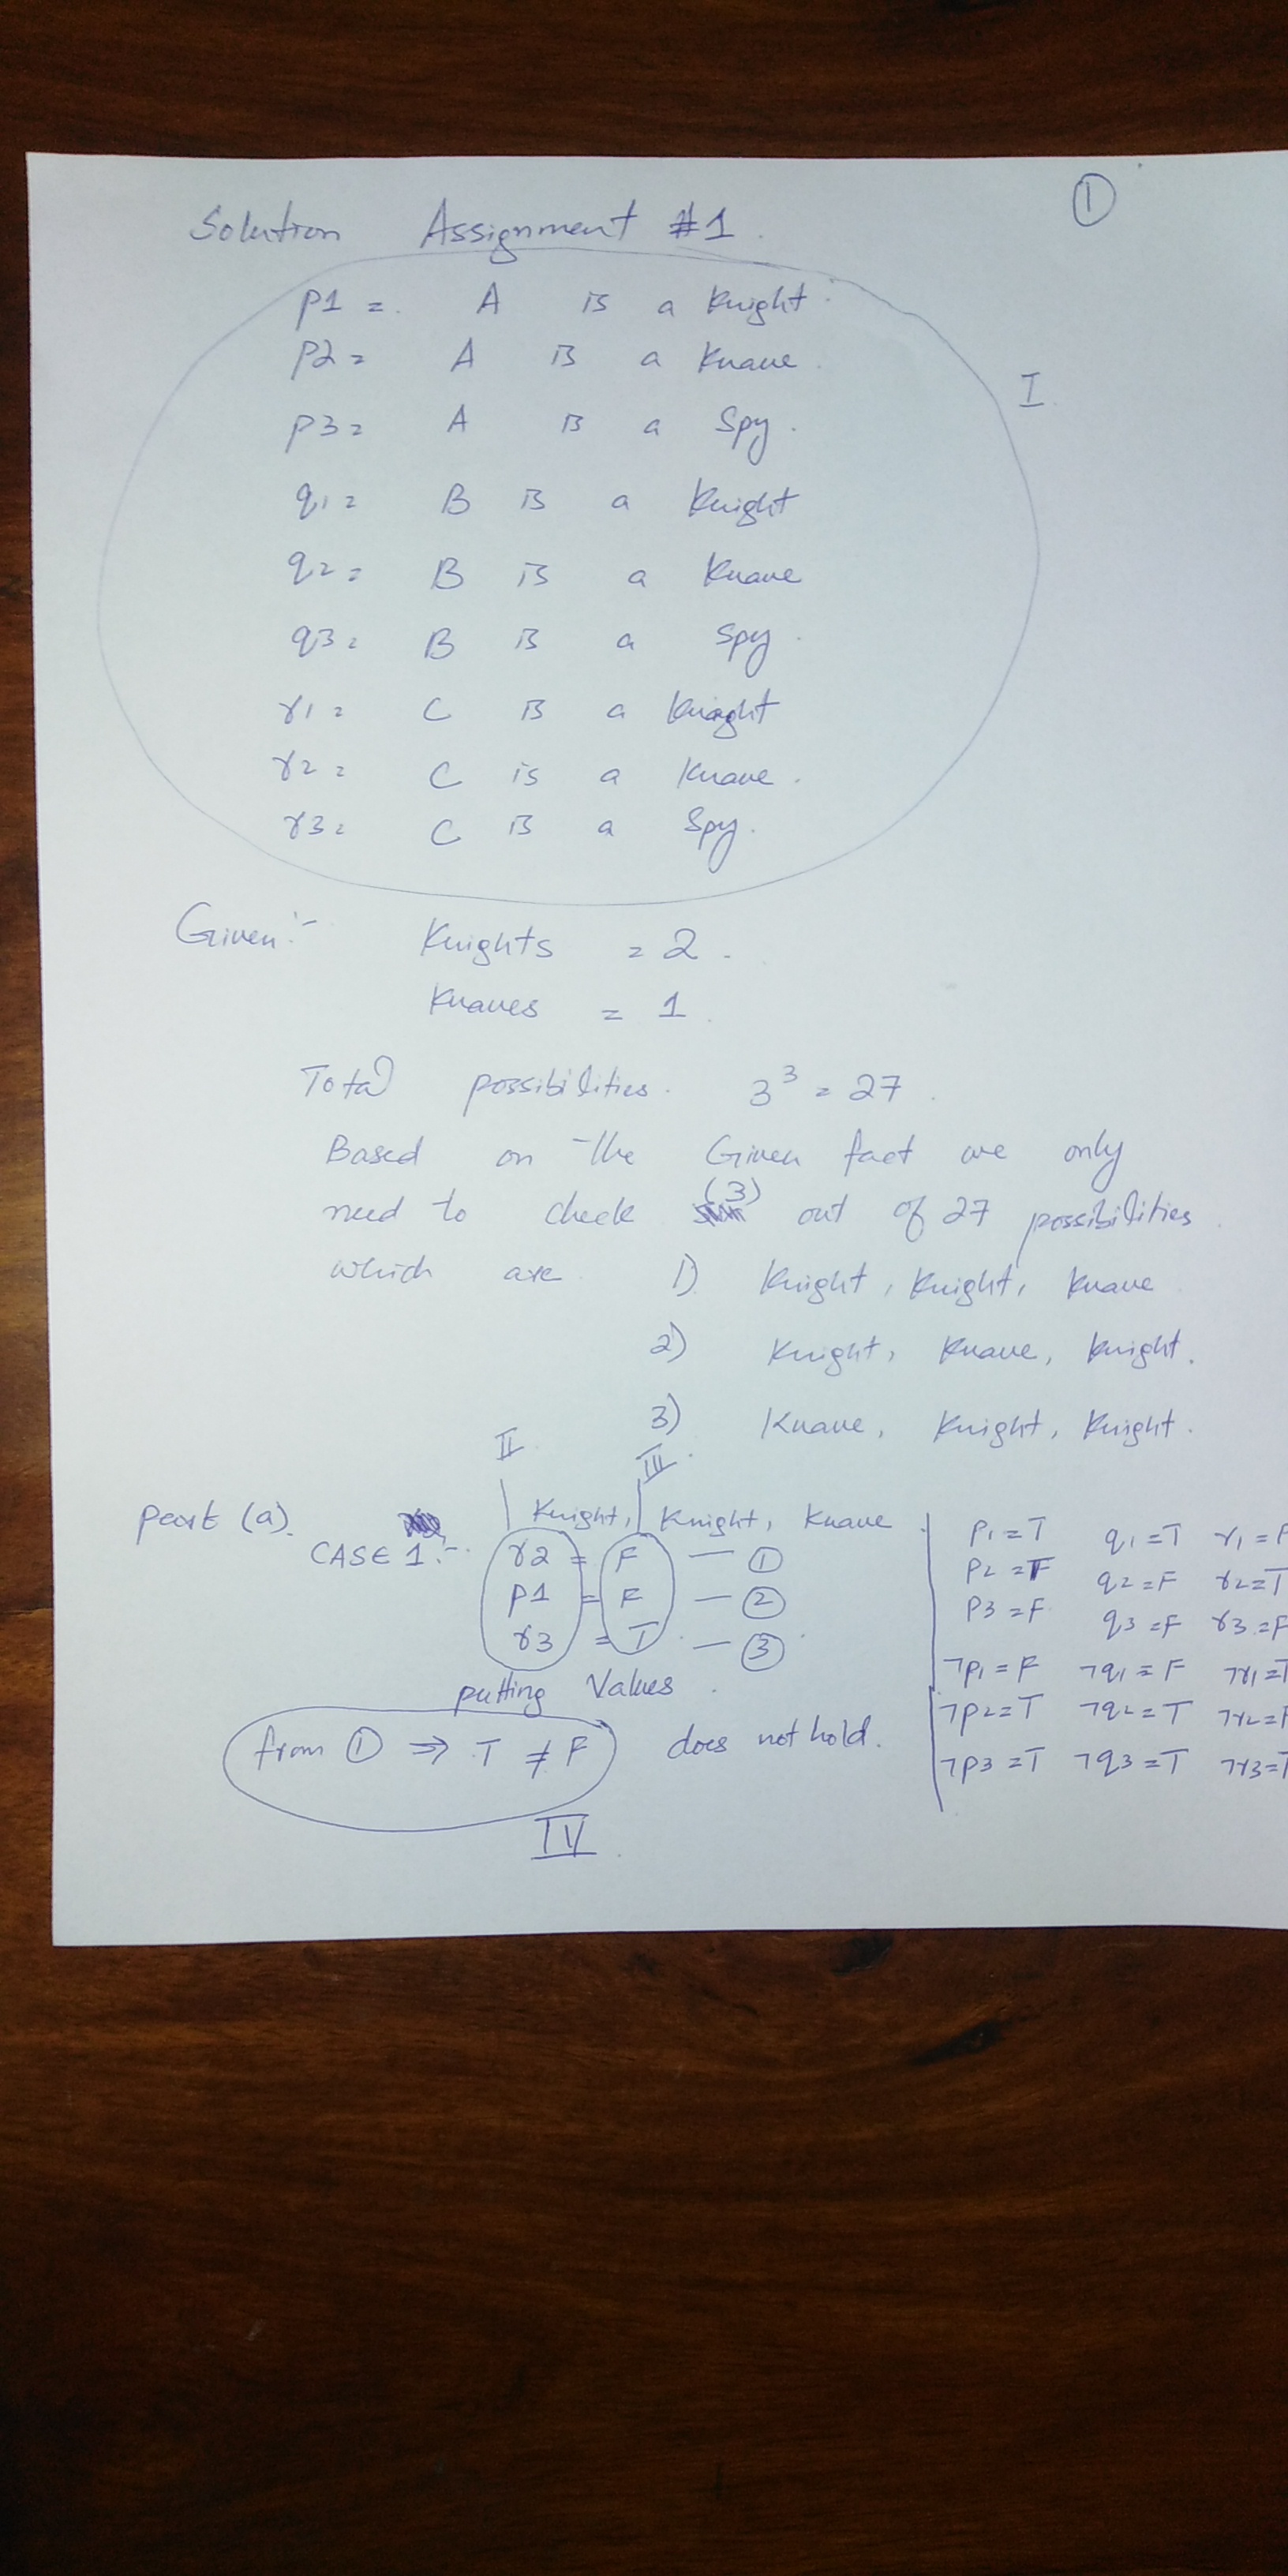 1
Solution Assignment #1.
p1 = A is a Knight.
p2 = A is a Knave.
p3 = A is a Spy.
I
q1 = B is a Knight
q2 = B is a Knave
q3 = B is a Spy.
r1 = C is a Knight
r2 = C is a Knave.
r3 = C is a Spy.
Given:- Knights = 2.
Knaves = 1.
Total possibilities. 3³ = 27.
Based on the Given fact we only
need to check (3) out of 27 possibilities
which are 1) Knight, Knight, Knave
2) Knight, Knave, Knight.
3) Knave, Knight, Knight.
II III
part (a). Knight, Knight, Knave
CASE 1:- r2 = F — ①
p1 = F — ②
r3 = T — ③
putting Values.
from ① ⇒ T ≠ F does not hold.
IV
p1 = T q1 = T r1 = F
p2 = F q2 = F r2 = T
p3 = F q3 = F r3 = F
¬p1 = F ¬q1 = F ¬r1 = T
¬p2 = T ¬q2 = T ¬r2 = F
¬p3 = T ¬q3 = T ¬r3 = T